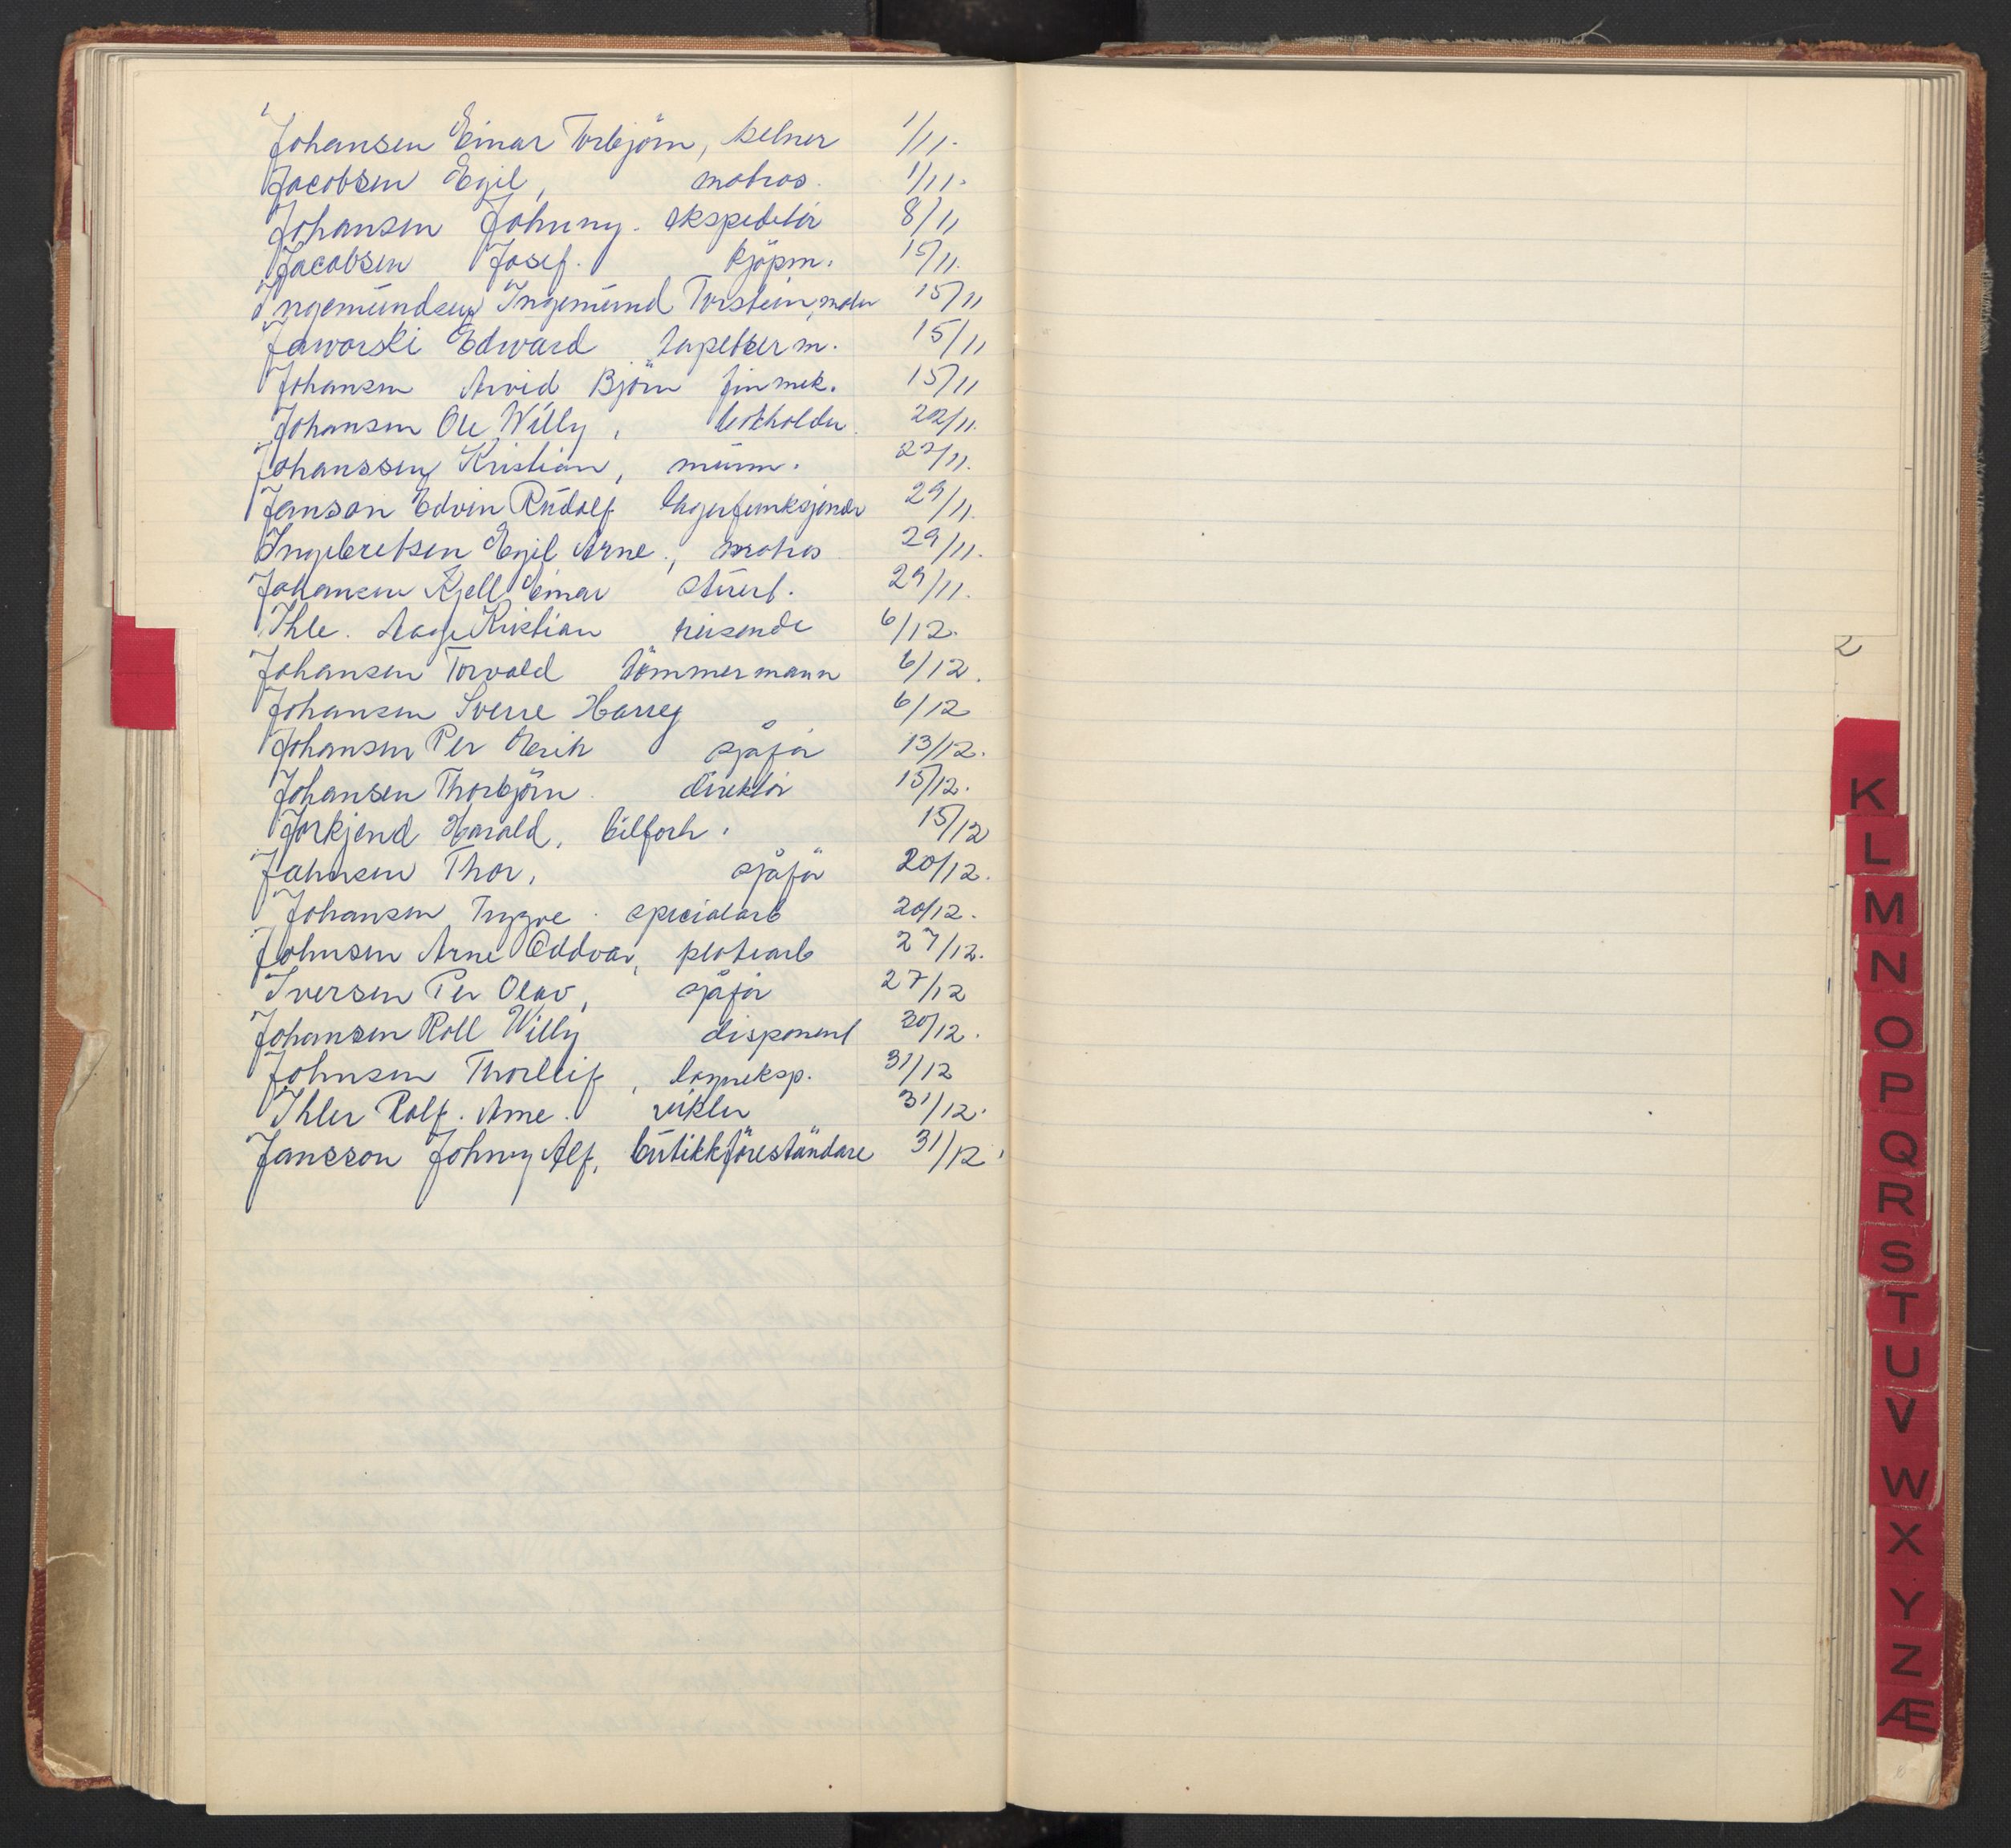 Johansen Einar Torbjörn, kelner 1/11.
Jacobsen Egil, matros. 1/11.
Johansen Johnny. ekspeditör 8/11
Jacobsen Josef. kjöpm. 15/11.
Ingemundsen Ingemund Torstein, maler 15/11
Jaworski Edward tapetserm. 15/11
Johansen Arvid Björn finmek. 15/11
Johansen Ole Willy, bokholder. 22/11.
Johanssen Kristian, murm. 22/11.
Janson Edvin Rudolf lagerfunksjonær 29/11.
Ingebretsen Egil Arne, matros 29/11.
Johansen Kjell Einar stuert. 29/11.
Ihle. Aage Kristian reisende 6/12.
Johansen Torvald tömmermann 6/12.
Johansen Sverre Harrey 6/12
Johansen Per Erik sjåför 13/12.
Johansen Thorbjörn. direktör 15/12.
Jorkjend Harald, bilforh. 15/12
Jahnsen Thor, sjåför 20/12.
Johansen Trygve. spesialarb 20/12.
Johnsen Arne Oddvar, platearb 27/12.
Iversen Per Olav, sjåför 27/12
Johansen Roll Willy disponent 30/12.
Johnsen Thorleif, 31/12
Ihler Rolf. Arne. vikler 31/12.
Jansson Johnny Alf, butikkföreståndare 31/12.
2
K
L
M
N
O
P
Q
R
S
T
U
V
W
X
Y
Z
Æ